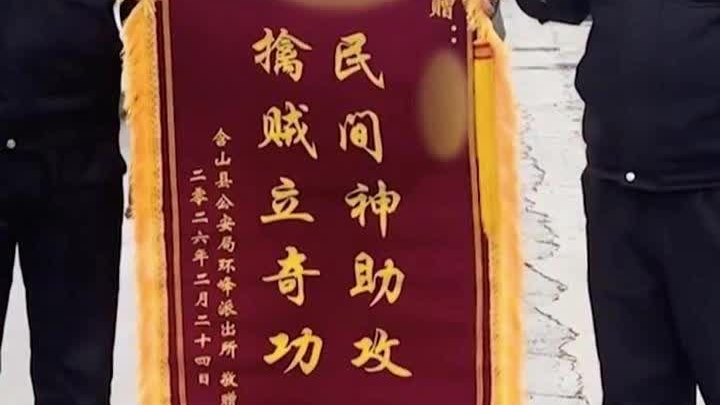 赠：
民间神助攻
擒贼立奇功
含山县公安局环峰派出所 敬赠
二零二六年二月二十四日